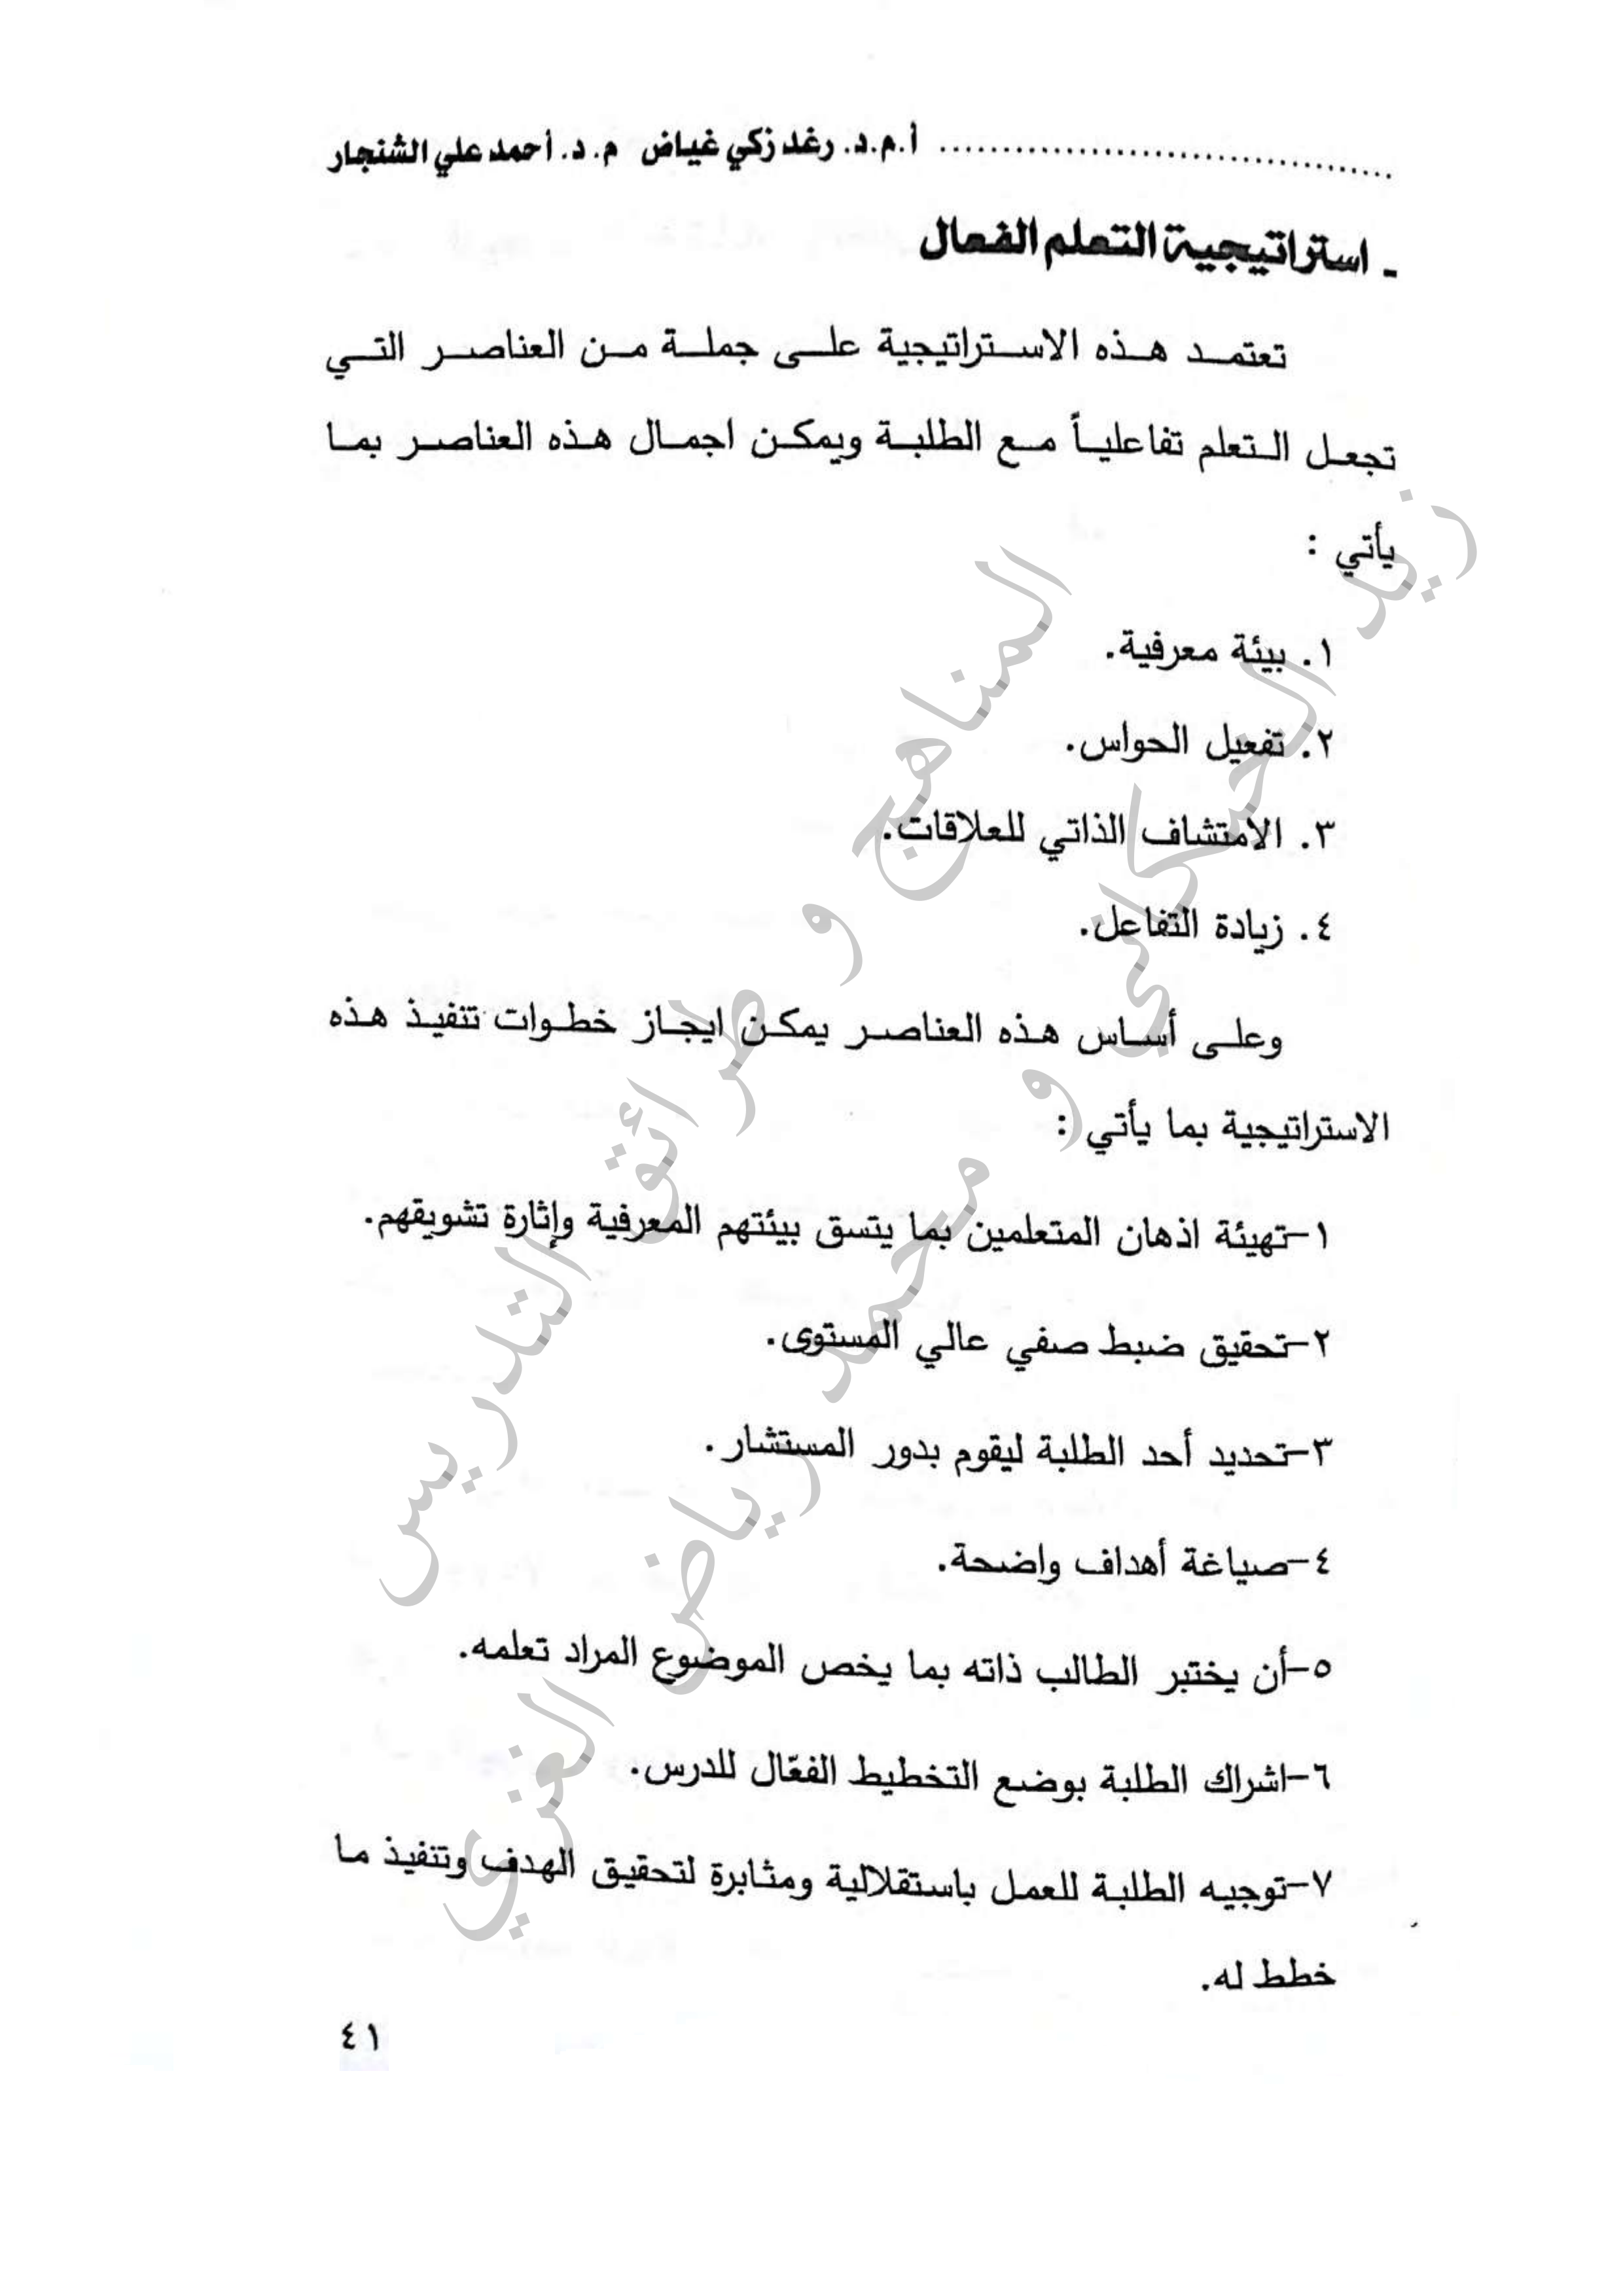 أ.م.د. رغد زكي غياض م. د. أحمد علي الشنجار
- استراتيجية التعلم الفعال
تعتمد هذه الاستراتيجية على جملة من العناصر التي
تجعل التعلم تفاعلياً مع الطلبة ويمكن اجمال هذه العناصر بما
يأتي :
١. بيئة معرفية.
٢. تفعيل الحواس.
٣. الامتشاف الذاتي للعلاقات.
٤. زيادة التفاعل.
وعلى أساس هذه العناصر يمكن ايجاز خطوات تنفيذ هذه
الاستراتيجية بما يأتي :
١-تهيئة اذهان المتعلمين بما يتسق بيئتهم المعرفية وإثارة تشويقهم.
٢-تحقيق ضبط صفي عالي المستوى.
٣-تحديد أحد الطلبة ليقوم بدور المستشار.
٤-صياغة أهداف واضحة.
٥-أن يختبر الطالب ذاته بما يخص الموضوع المراد تعلمه.
٦-اشراك الطلبة بوضع التخطيط الفعّال للدرس.
٧-توجيه الطلبة للعمل باستقلالية ومثابرة لتحقيق الهدف وتنفيذ ما
خطط له.
٤١
المناهج و طرائق التدريس
زيد الحسكاني و محمد رياض الغزي